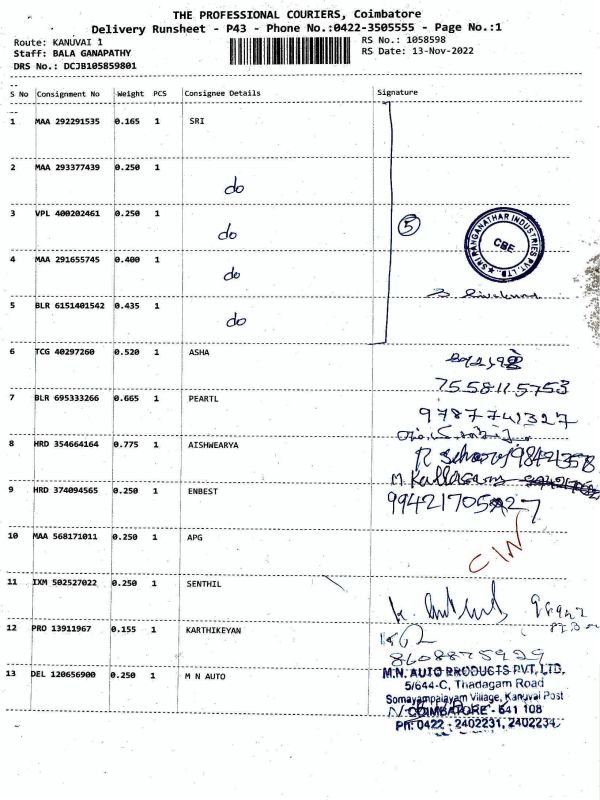 THE PROFESSIONAL COURIERS, Coimbatore
Delivery Runsheet - P43 - Phone No.:0422-3505555 - Page No.:1
Route: KANUVAI 1
RS No.: 1058598
Staff: BALA GANAPATHY
RS Date: 13-Nov-2022
DRS No.: DCJB105859801
S No Consignment No Weight PCS Consignee Details Signature
1 MAA 292291535 0.165 1 SRI
2 MAA 293377439 0.250 1 do
3 VPL 400202461 0.250 1 do
4 MAA 291655745 0.400 1 do
5 BLR 6151401542 0.435 1 do
5
SRI RANGANATHAR INDUSTRIES PVT. LTD.
CBE
6 TCG 40297260 0.520 1 ASHA
7558115753
7 BLR 695333266 0.665 1 PEARTL
9787741327
8 HRD 354664164 0.775 1 AISHWEARYA
9 HRD 374094565 0.250 1 ENBEST
10 MAA 568171011 0.250 1 APG
11 IXM 502527022 0.250 1 SENTHIL
12 PRO 13911967 0.155 1 KARTHIKEYAN
8608875929
13 DEL 120656900 0.250 1 M N AUTO
M.N. AUTO PRODUCTS PVT, LTD.
5/644-C, Thadagam Road
Somayampalayam Village, Kanuvai Post
COIMBATORE - 641 108
Ph: 0422 - 2402231, 2402234